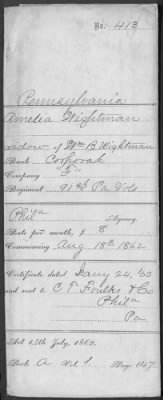 No. 413
Pennsylvania
Amelia Wightman
widow of Wm B. Wightman
Rank Corporal
Company "F"
Regiment 91st Pa Vols
Phila Agency.
Rate per month, $ 8
Commencing Aug 18th 1862
Certificate dated Jany 24, 63
and sent to C T Foulks & Co
Phila
Pa
Act 14th July, 1862.
Book A Vol. 1. Page 147